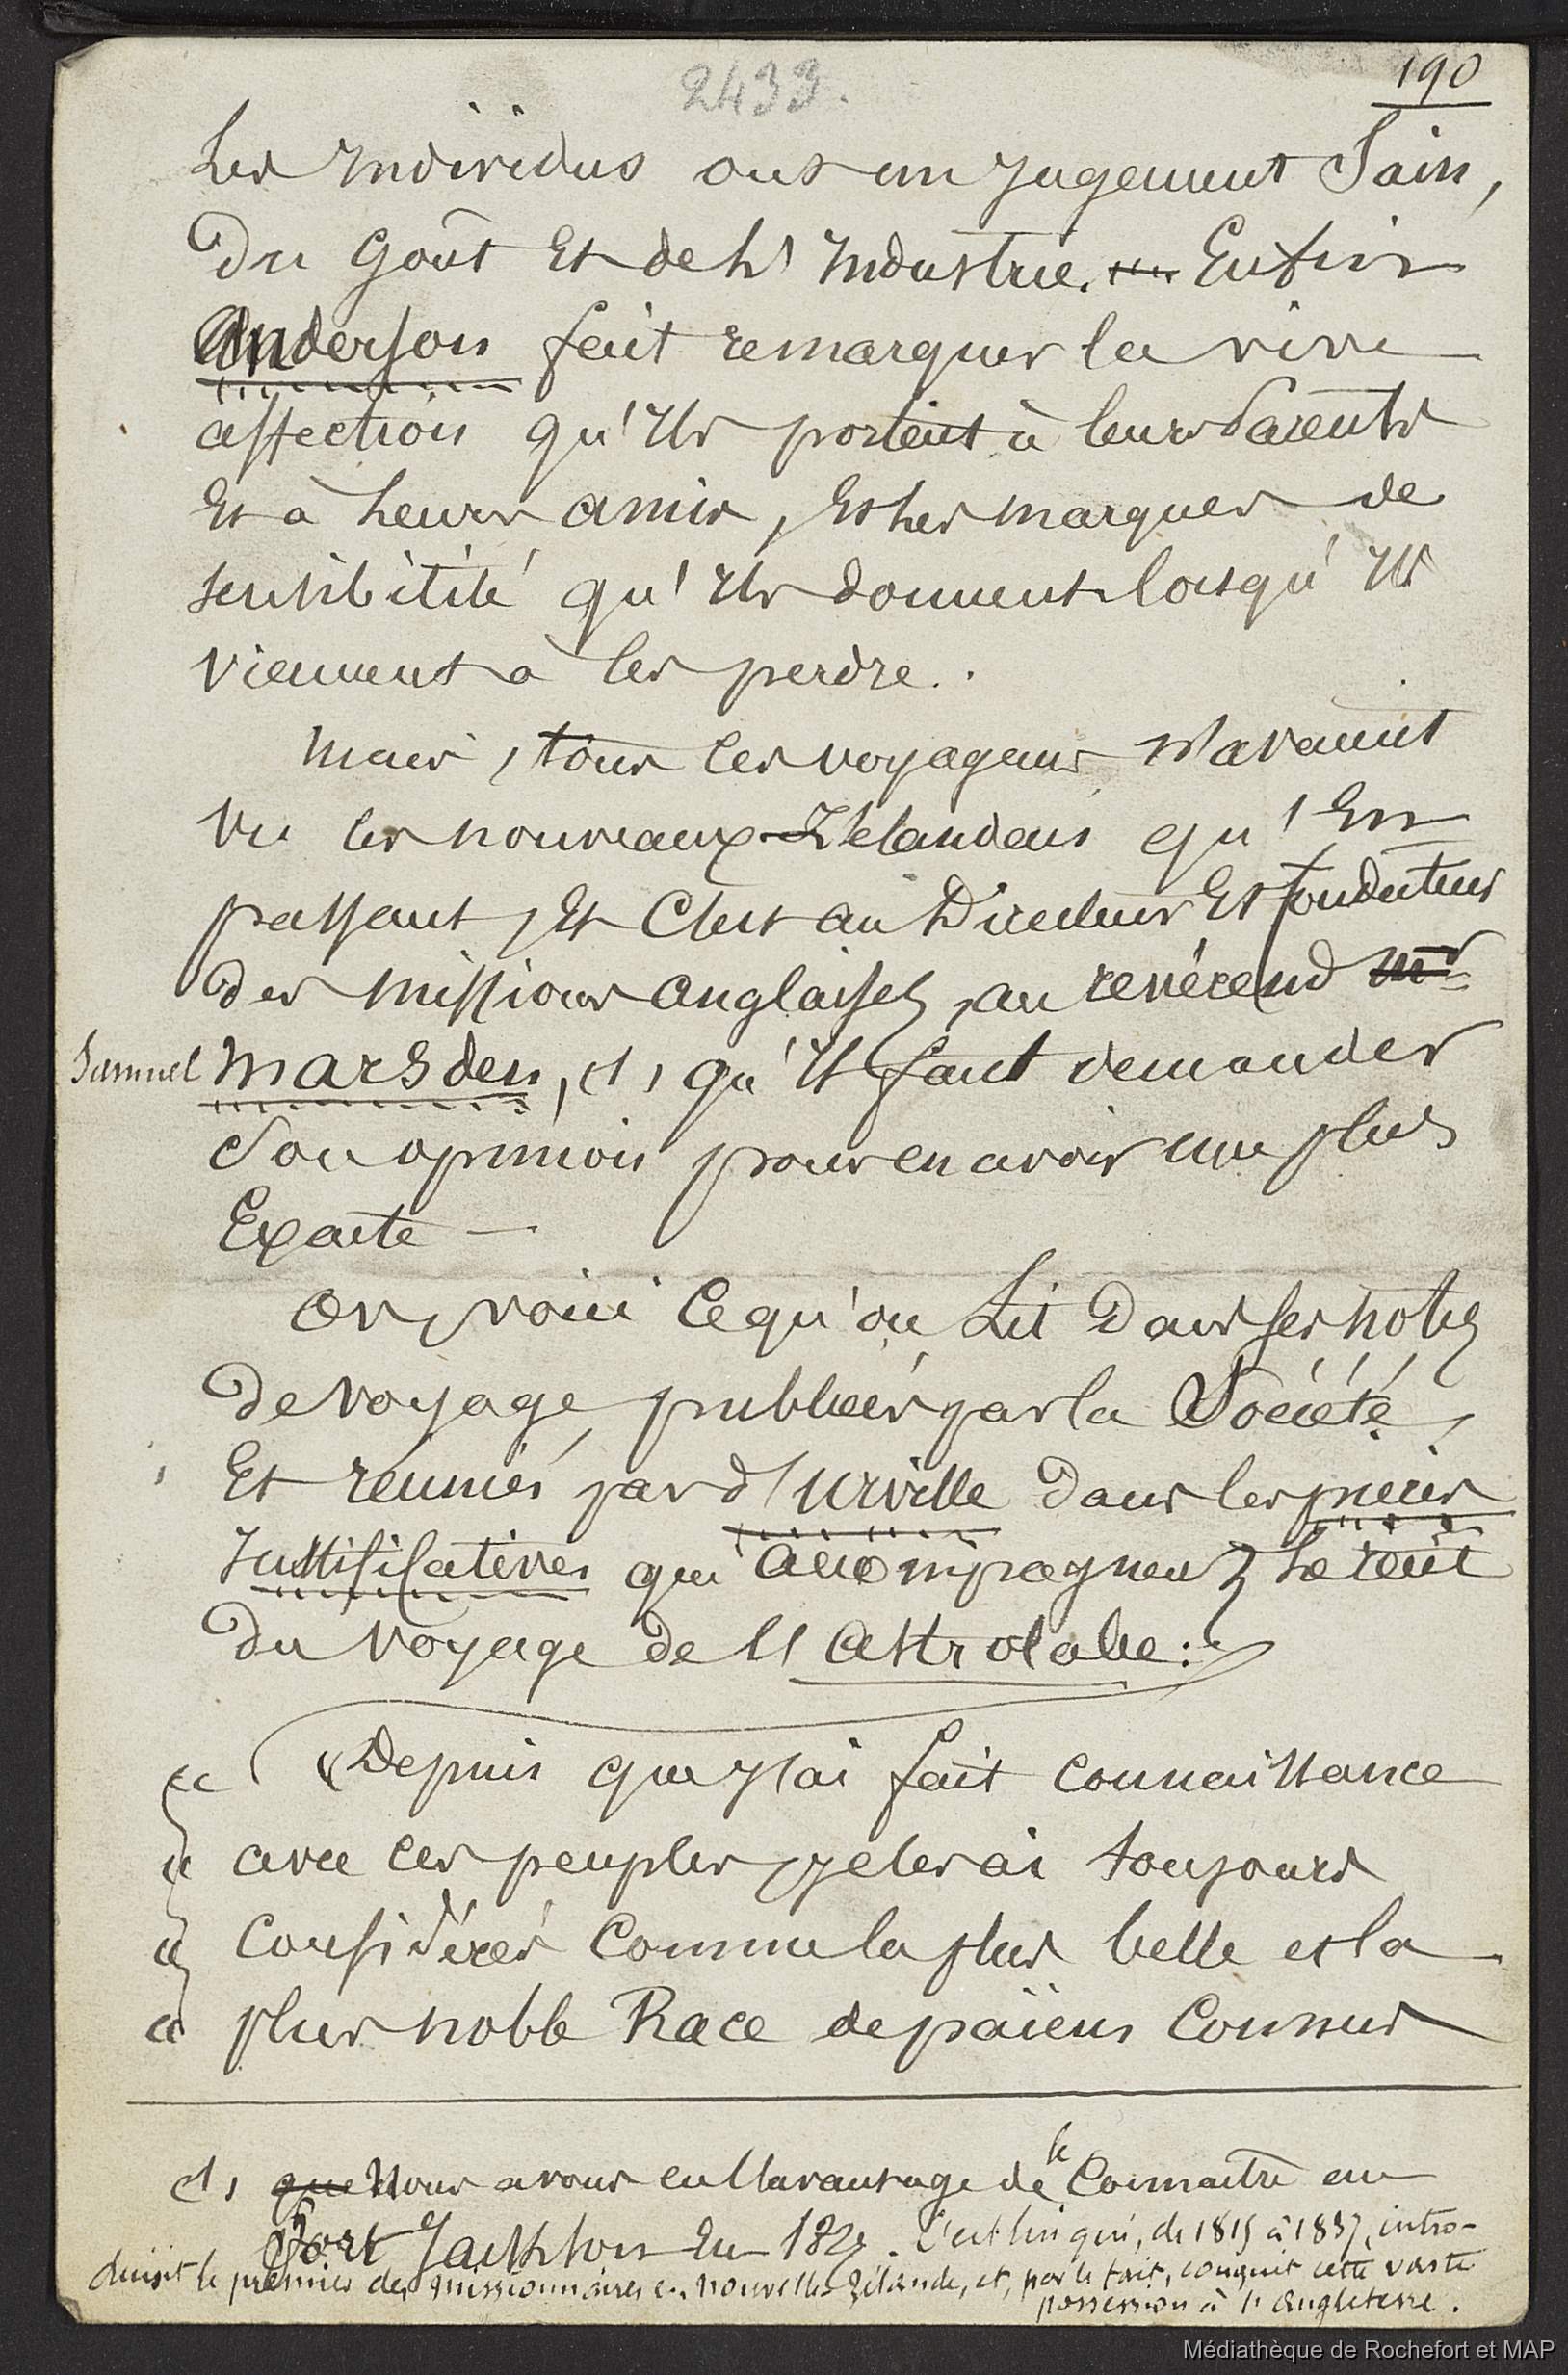 190
2433.
Les Individus ont un Jugement Sain,
Du Goût Et de L'Industrie. Enfin
Anderson fait remarquer la vive
affection qu'Ils portent à leurs Parents
Et à Leurs amis, Et Les marques de
sensibilité qu'Ils donnent lorsqu'Ils
viennent à les perdre.
Mais, tous les voyageurs n'avaient
vu les nouveaux-Zélandais qu'En
passant, Et C'est au Directeur Et fondateur
des missions anglaises, au révérend Mr
Samuel Marsden, (1) qu'Il faut demander
Son opinion pour en avoir une plus
Exacte —
Or, voici Ce qu'on Lit Dans ses notes
de voyage, publiées par la Société,
Et réunies par d'Urville Dans les pièces
Justificatives qui accompagnent Le récit
Du voyage de l'Astrolabe :
« « Depuis que J'ai fait connaissance
« avec ces peuples, Je les ai toujours
« Considérés Comme la plus belle et la
« plus noble Race de païens Connus
(1) que Nous avons eu l'avantage de le Connaître au
Port Jackson En 182. C'est lui qui, de 1815 à 1837, intro-
duisit le premier des missionnaires en nouvelle Zélande, et, par le fait, conquit cette vaste
possession à l'Angleterre.
Médiathèque de Rochefort et MAP